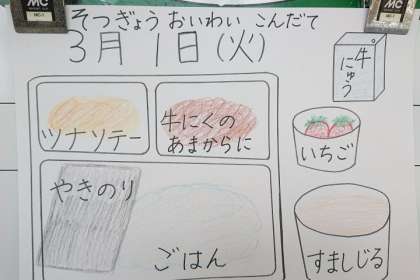 MC
MC
そつぎょう おいわい こんだて
3月 1日(火)
牛
にゅう
ツナソテー
牛にくの
あまからに
いちご
やきのり
ごはん
すましじる